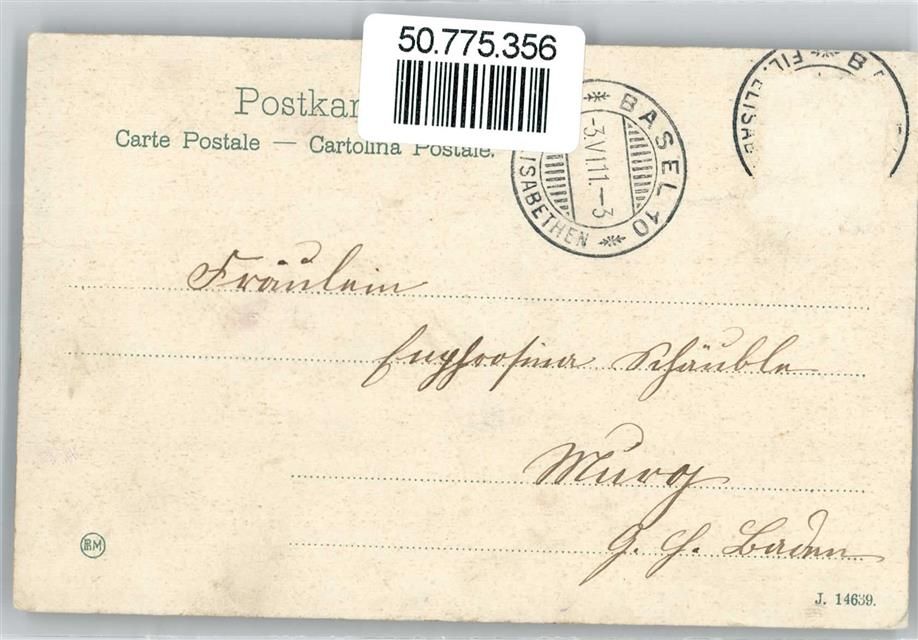 50.775.356
Postkar
Carte Postale — Cartolina Postale.
BASEL 10
-3.VII11.-3
ISABETHEN
B
FIL. ELISAB
Fräulein
Euphrosina Schäuble
Murg
G. H. Baden
PRM
J. 14639.